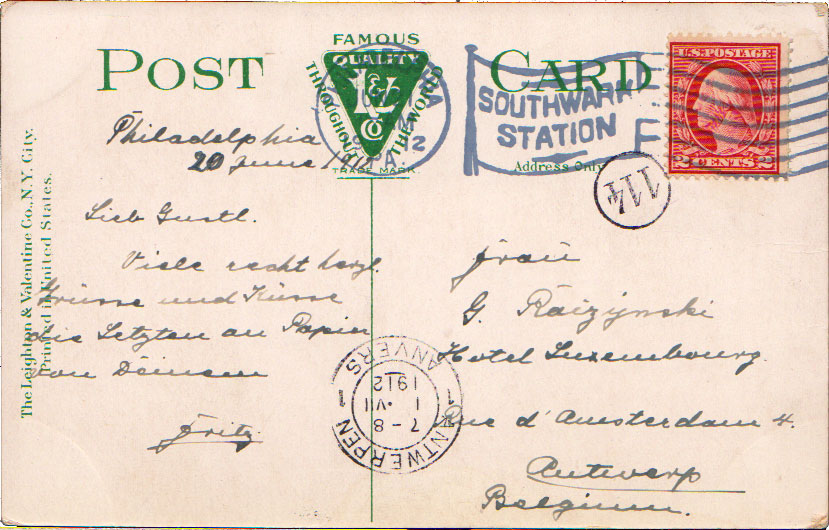 POST CARD
FAMOUS
QUALITY
THROUGHOUT THE WORLD
L&V Co
TRADE MARK.
Address Only
SOUTHWARK
STATION
U.S. POSTAGE
2 CENTS 2
114
The Leighton & Valentine Co., N.Y. City.
Printed in United States.
Philadelphia
20 June 1912
Lieb Gustl.
Viele recht herzl.
Grüsse und Küsse
die Letzten an Papier
von Deinem
Fritz
Frau
G. Raizijnski
Hotel Luxembourg.
Rue d'Amsterdam 4.
Antwerp
Belgium.
ANTWERPEN 1 ANVERS 1
7-8
1·VII
1912